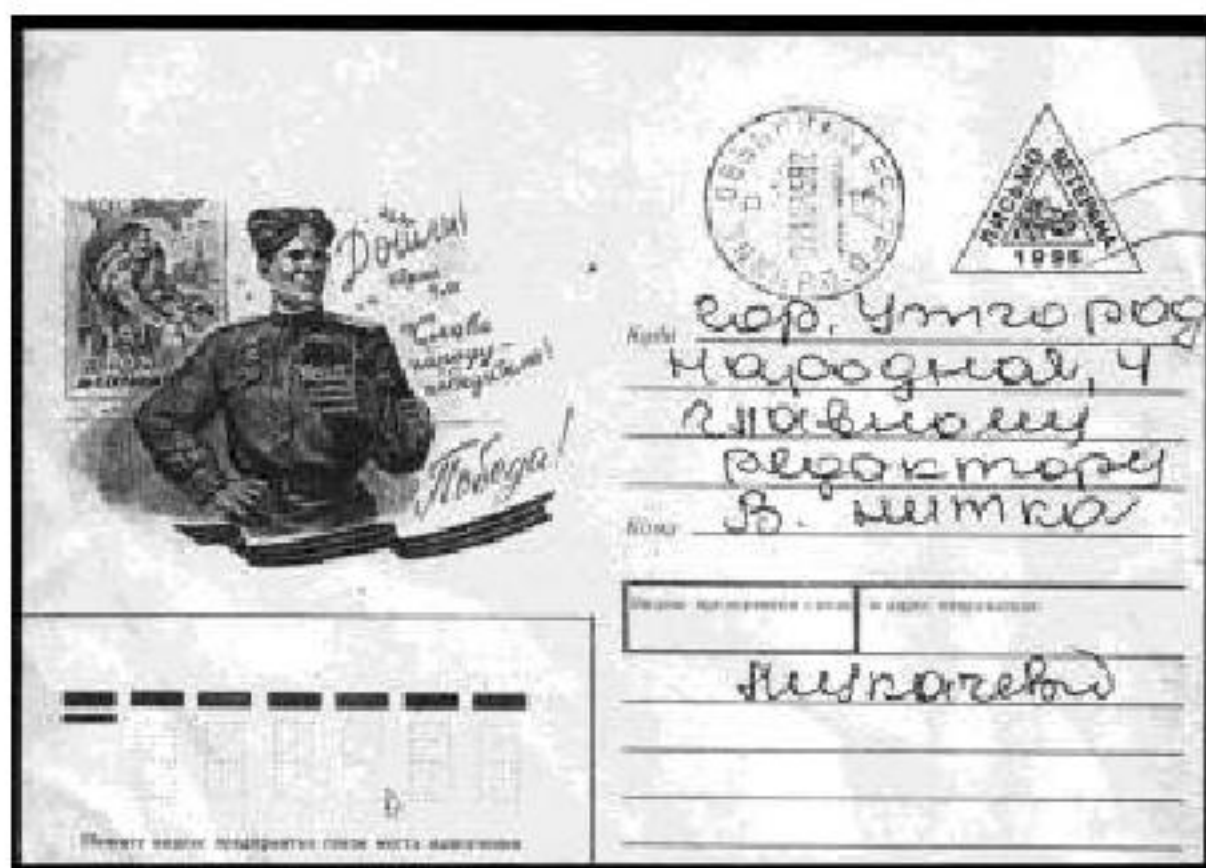 Дошли!
Слава
народу-
победителю!
Победа!
ПИСЬМО ВЕТЕРАНА
1995
Куда гор. Ужгород
Народная, 4
главному
редактору
Кому В. Нитка
Индекс предприятия связи и адрес отправителя
Мукачево
Пишите индекс предприятия связи места назначения